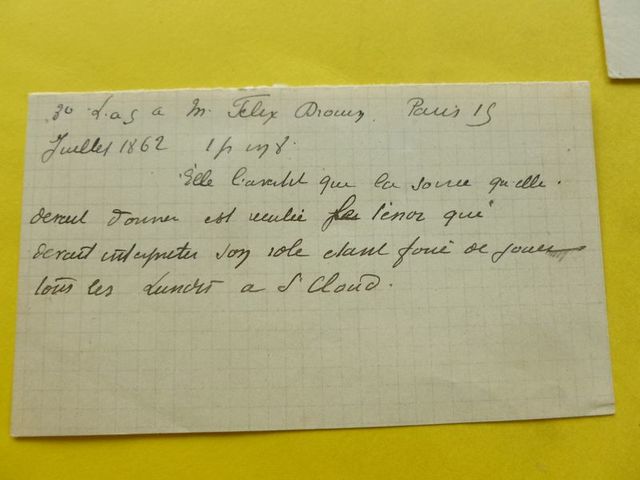 3o L.a.s a M. Felix Drouin. Paris 15
Juillet 1862 1 p in 8.
Elle l'avertit que la soirée qu'elle
devait donner est reculée le ténor qui
devait interpreter son role etant forcé de jouer
tous les Lundis a St Cloud.